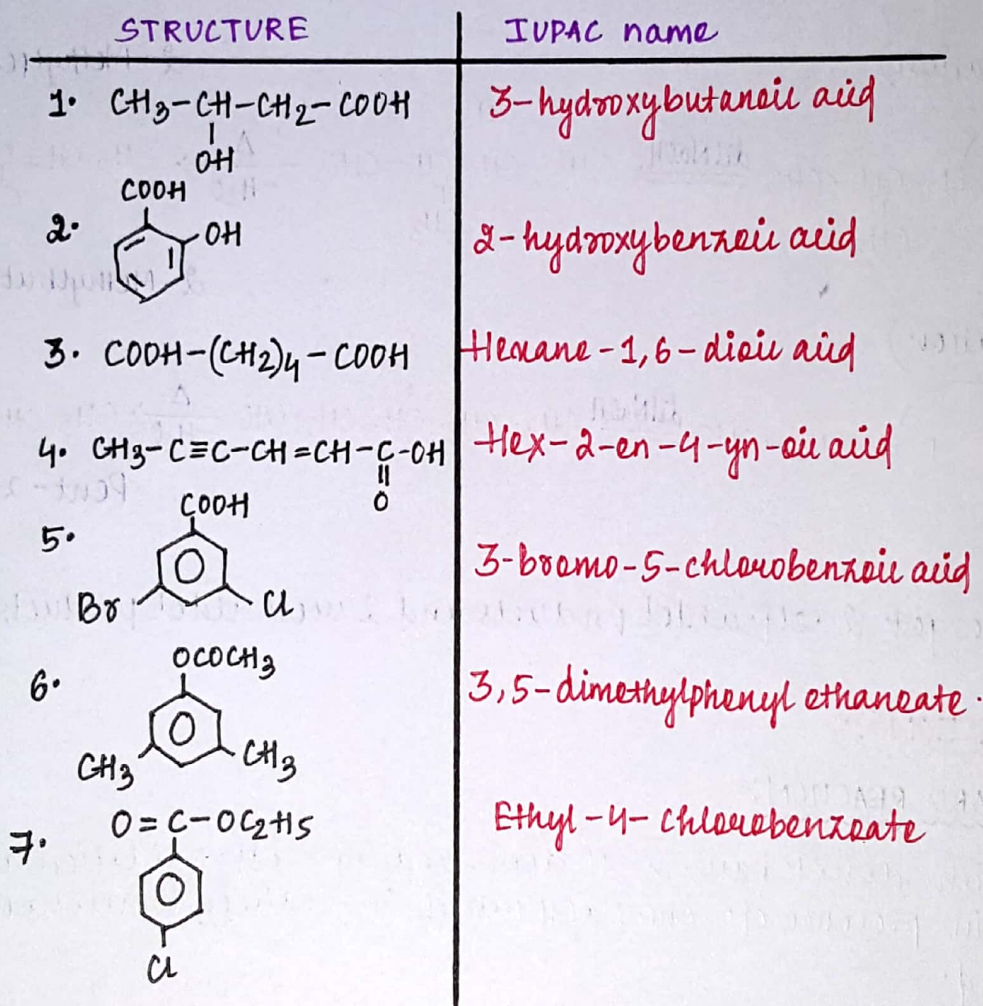 STRUCTURE IUPAC name
1. CH3-CH-CH2-COOH 3-hydroxybutanoic acid
OH
COOH
2. OH 2-hydroxybenzoic acid
3. COOH-(CH2)4-COOH Hexane-1,6-dioic acid
4. CH3-C≡C-CH=CH-C-OH Hex-2-en-4-yn-oic acid
O
COOH
5. 3-bromo-5-chlorobenzoic acid
Br Cl
OCOCH3
6. 3,5-dimethylphenyl ethanoate.
CH3 CH3
O=C-OC2H5 Ethyl-4-chlorobenzoate
7.
Cl